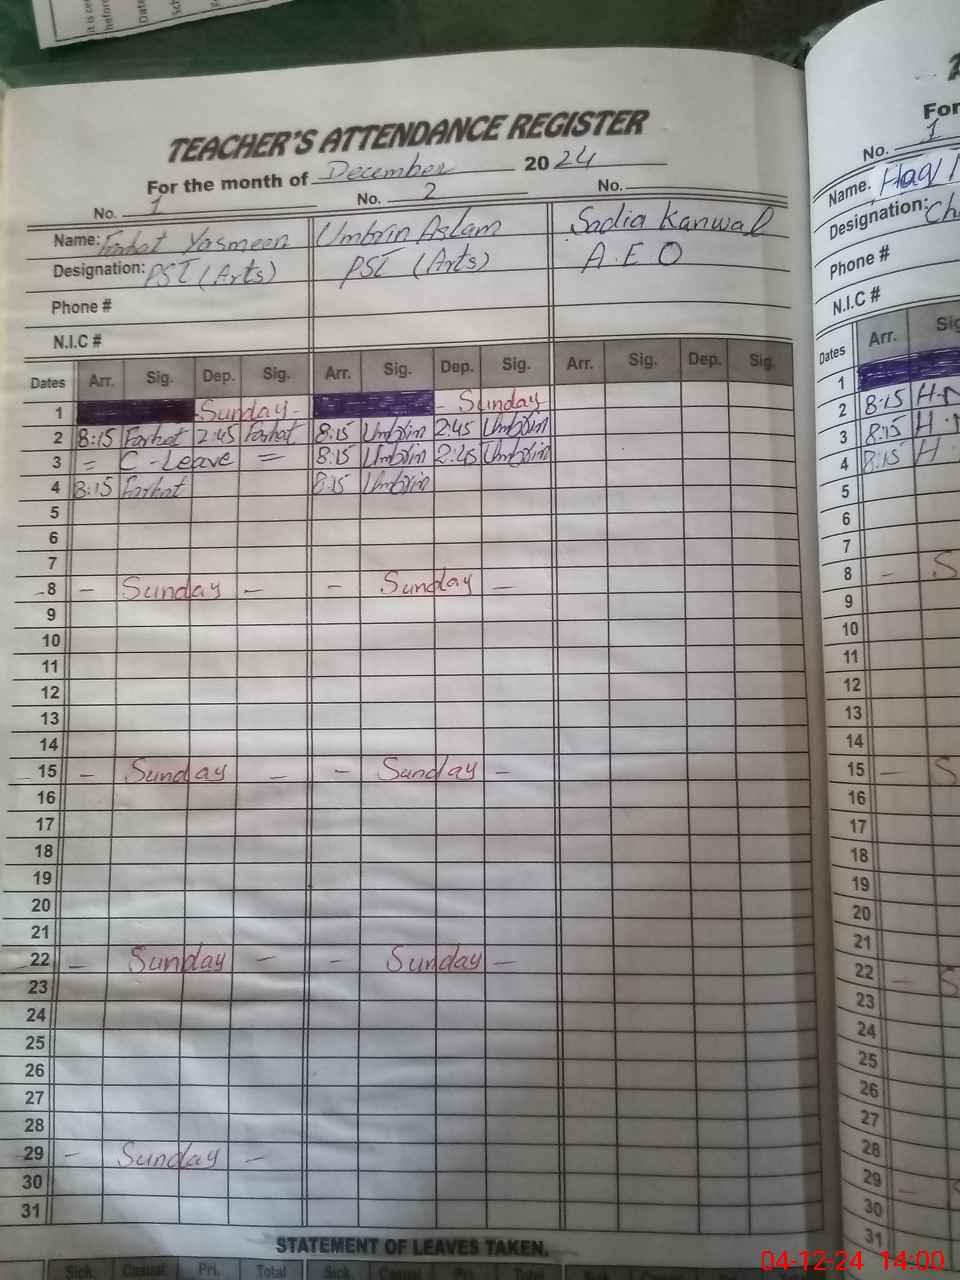 TEACHER'S ATTENDANCE REGISTER
For the month of December 2024
No. 1 No. 2 No.
Name: Farhat Yasmeen Umbrin Aslam Sadia Kanwal
Designation: PST (Arts) PST (Arts) A.E.O
Phone #
N.I.C #
Dates Arr. Sig. Dep. Sig. Arr. Sig. Dep. Sig. Arr. Sig. Dep. Sig.
1 Sunday - - Sunday
2 8:15 Farhat 2:45 Farhat 8:15 Umbrin 2:45 Umbrin
3 = C-Leave = 8:15 Umbrin 2:45 Umbrin
4 8:15 Farhat 8:15 Umbrin
5
6
7
8 - Sunday - - Sunday -
9
10
11
12
13
14
15 - Sunday - - Sunday -
16
17
18
19
20
21
22 - Sunday - - Sunday -
23
24
25
26
27
28
29 - Sunday -
30
31
STATEMENT OF LEAVES TAKEN.
Sick. Casual Pri. Total Sick.
For
No. 1
Name. Haq
Designation: Ch
Phone #
N.I.C #
Dates Arr. Sig
1
2 8:15 H.
3 8:15 H.
4 8:15 H.
5
6
7
8 - S
9
10
11
12
13
14
15 - S
16
17
18
19
20
21
22 - S
23
24
25
26
27
28
29 -
30
31
04-12-24 14:00